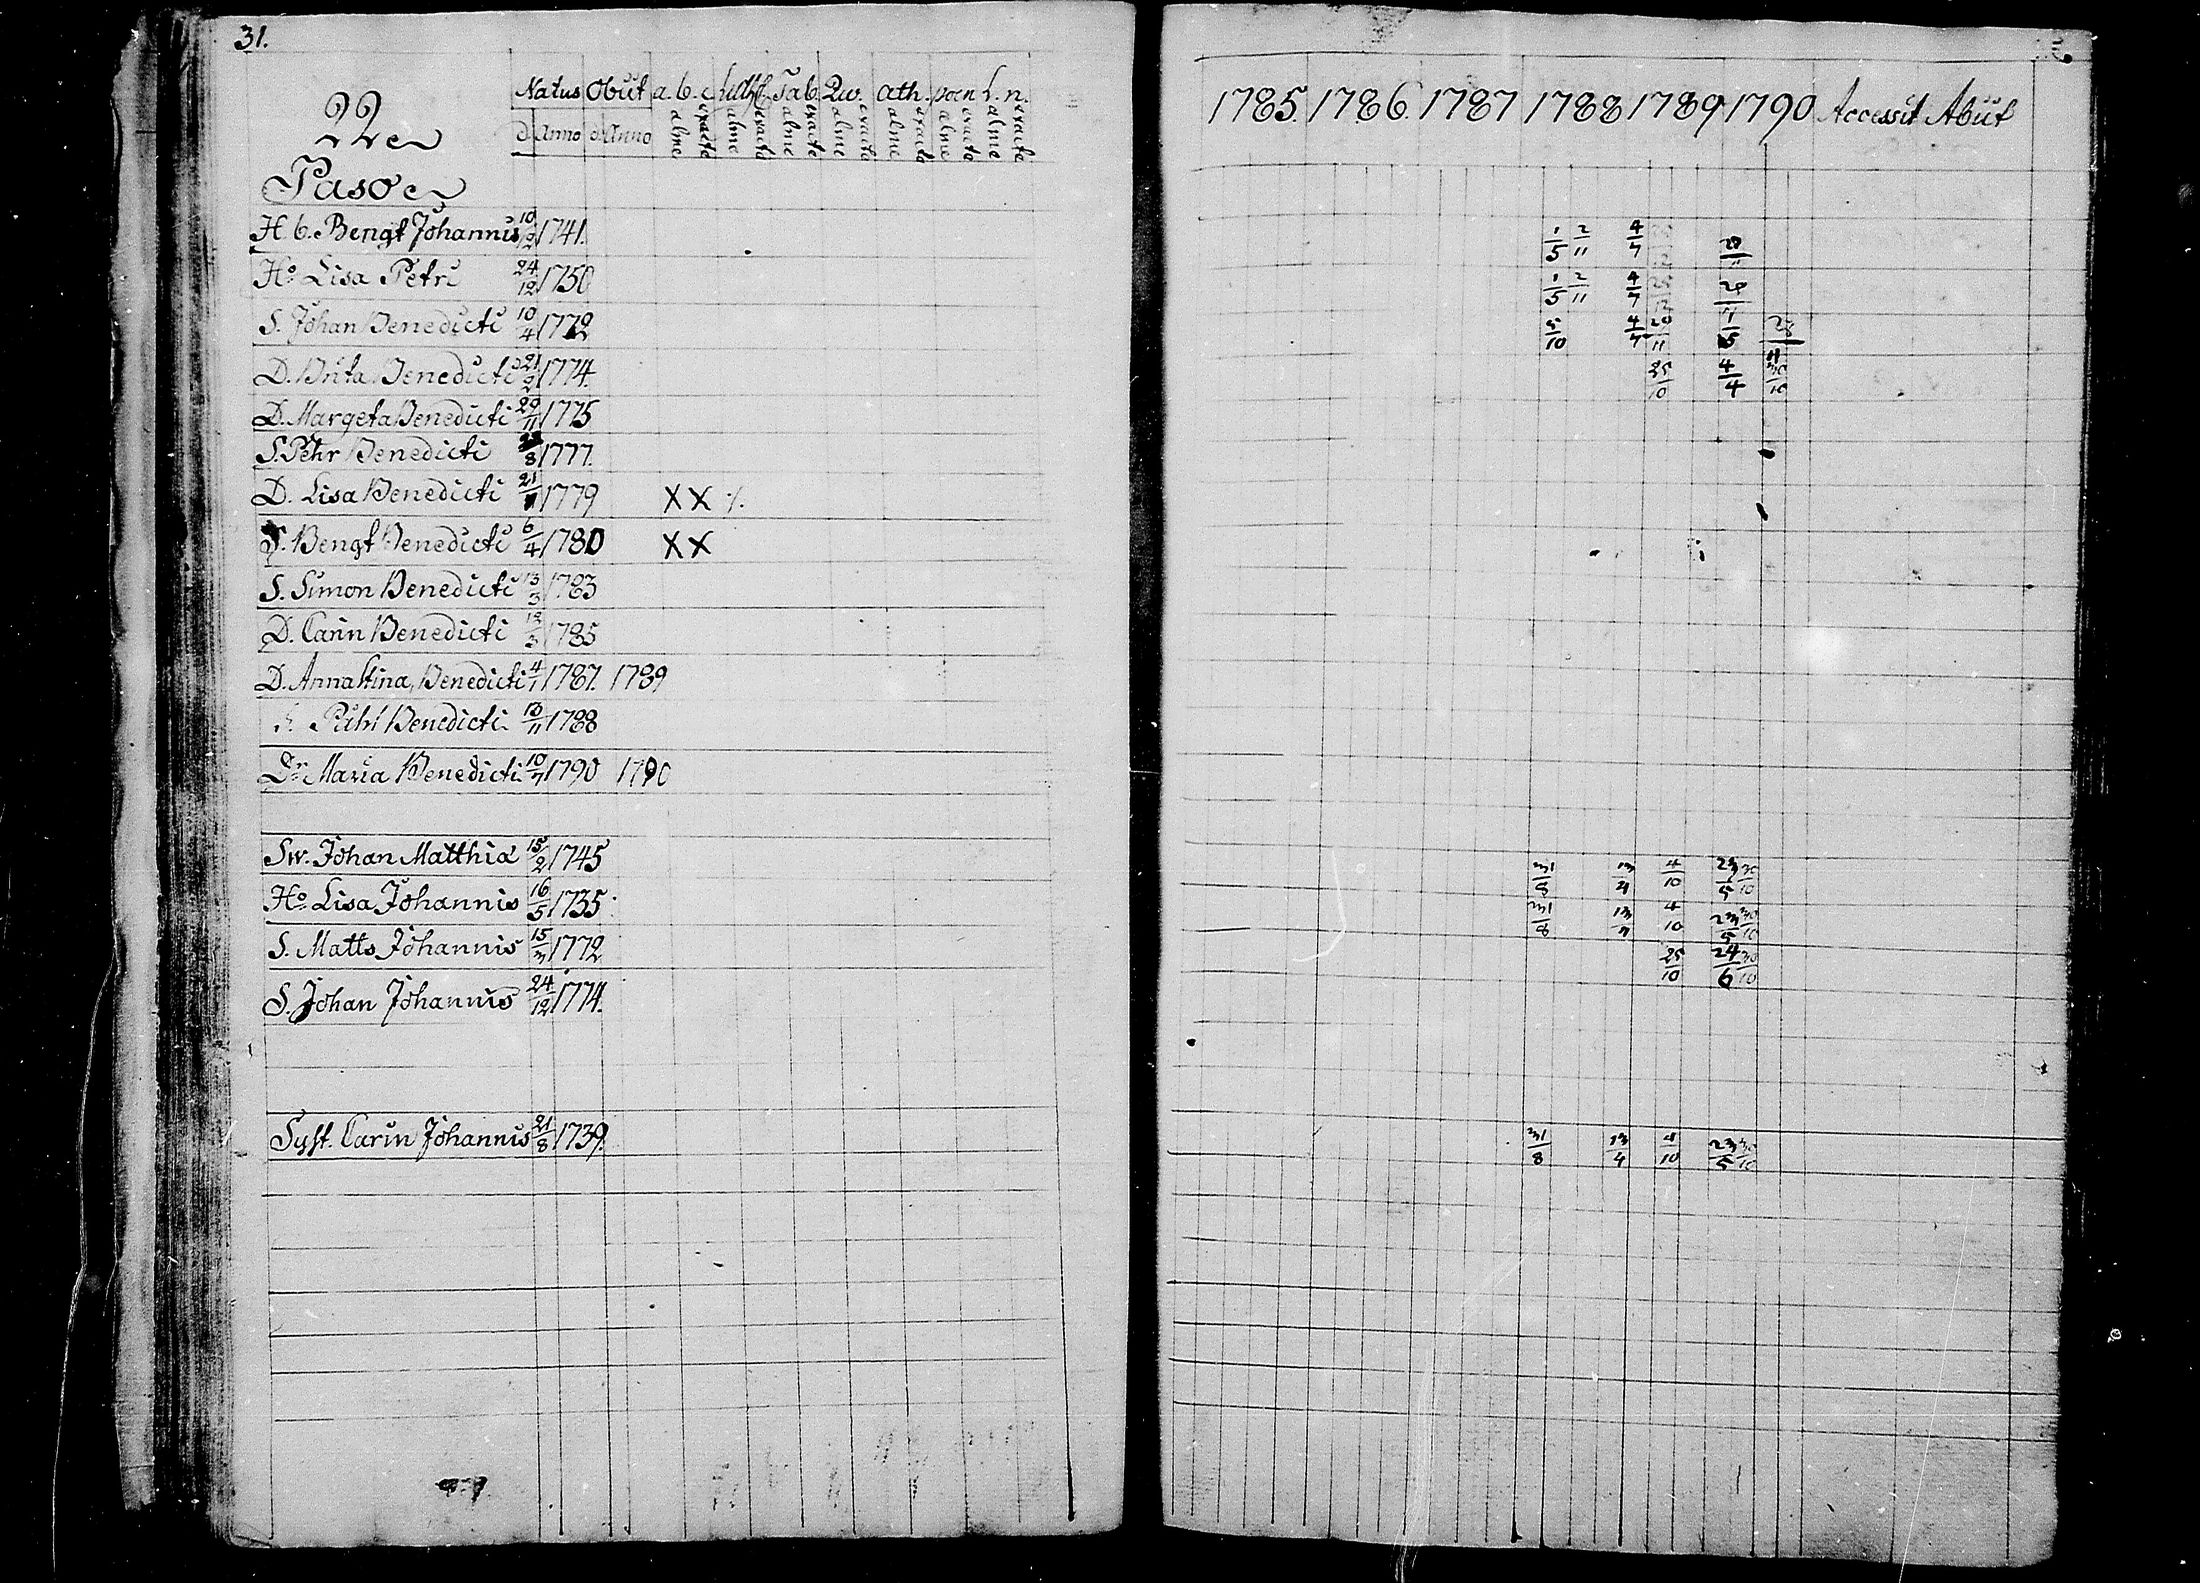 31.
22
Paso
Natus Obiit a. b. c. Tab. Qu. Ath. poen L. n.
d. Anno d. Anno alme exacte alme exacte alme exacte alme exacte alme exacte alme exacte alme exacte
H. b. Bengt Johannis 10/12 1741.
Ho Lisa Petri 24/12 1750
S. Johan Benedicti 10/4 1772
D. Brita Benedicti 21/2 1774.
D. Margeta Benedicti 29/11 1775
S. Pehr Benedicti 1777.
D. Lisa Benedicti 1779 X X ⁒
S. Bengt Benedicti 6/4 1780 X X
S. Simon Benedicti 13/3 1783
D. Carin Benedicti 13/3 1785
D. Anna Stina Benedicti 4/1 1787. 1789
Benedicti 1788
Dr. Maria Benedicti 10/7 1790 1790
Sw. Johan Matthiæ 15/2 1745
Ho Lisa Johannis 16/5 1735
S. Matts Johannis 15/3 1772
S. Johan Johannis 24/12 1774.
Syst. Carin Johannis 21/8 1739.
1785. 1786. 1787 1788 1789 1790 Accessit Abiit
1/5 2/11 4/7
1/5 2/11 4/7
5/10 4/7 20/11 1/5
25/10 4/4 30/10
31/8 13/4 4/10 23/5 30/10
31/8 13/4 4/10 23/5 30/10
25/10 24/6 30/10
31/8 13/4 4/10 23/5 30/10